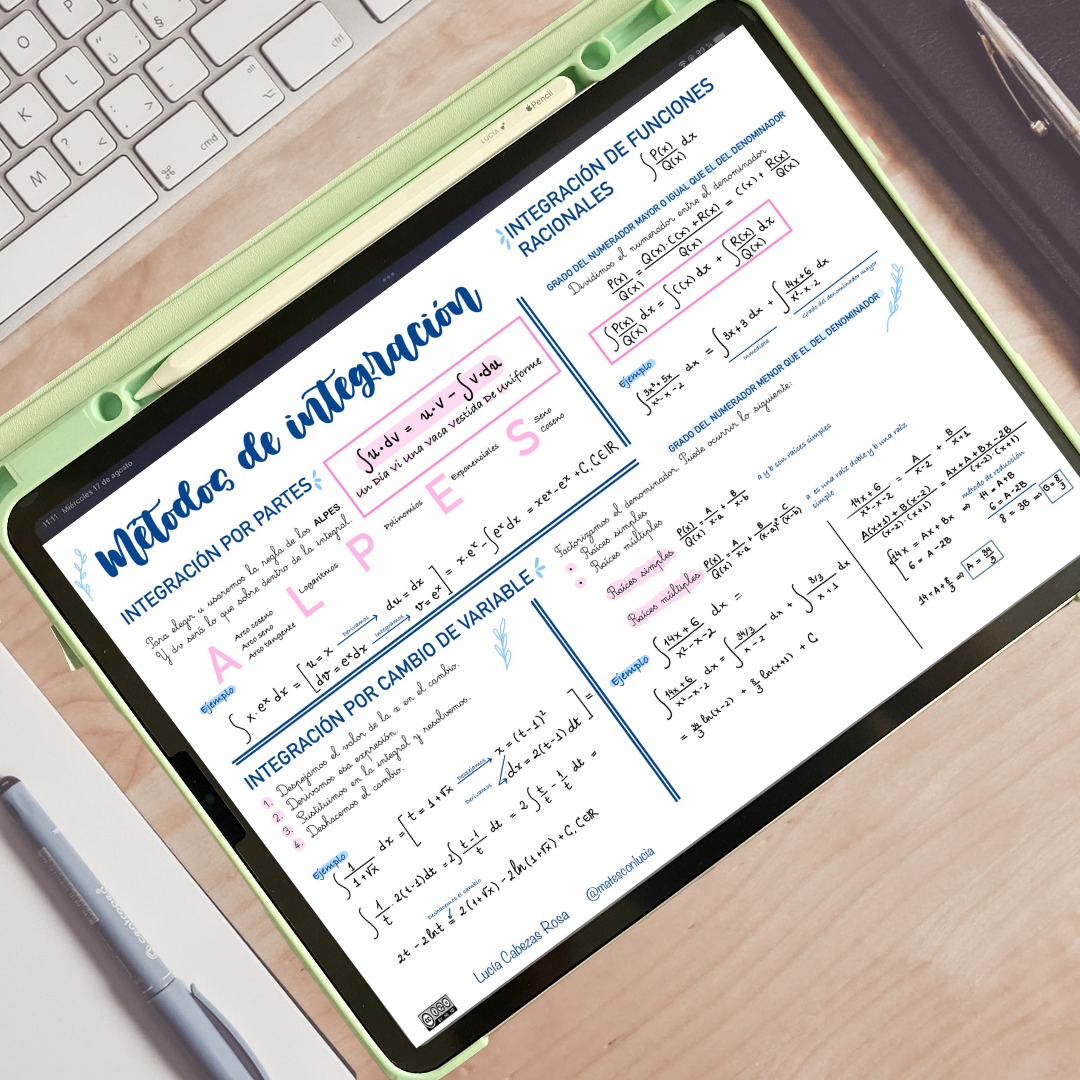 11:11 Miércoles 17 de agosto
99 %
LUCÍA
Pencil
Métodos de integración
INTEGRACIÓN POR PARTES
Para elegir u usaremos la regla de los ALPES.
Y dv será lo que sobre dentro de la integral.
∫u·dv = u·v - ∫v·du
Un Día Vi Una Vaca Vestida De Uniforme
A
Arco coseno
Arco seno
Arco tangente
L
Logaritmos
P
Polinomios
E
Exponenciales
S
Seno
Coseno
Ejemplo
∫ x·eˣ dx = [ u = x Derivamos du = dx
dv = eˣdx Integramos v = eˣ ] = x·eˣ - ∫eˣ dx = xeˣ - eˣ + C, C∈ℝ
INTEGRACIÓN POR CAMBIO DE VARIABLE
1. Despejamos el valor de la x en el cambio.
2. Derivamos esa expresión.
3. Sustituimos en la integral y resolvemos.
4. Deshacemos el cambio.
Ejemplo
∫ 1/(1+√x) dx = [ t = 1+√x Despejamos x = (t-1)²
Derivamos dx = 2(t-1) dt ] =
∫ 1/t · 2(t-1)dt = 2∫ (t-1)/t dt = 2∫ t/t - 1/t dt =
Deshacemos el cambio
2t - 2lnt = 2(1+√x) - 2ln(1+√x) + C, C∈ℝ
INTEGRACIÓN DE FUNCIONES
RACIONALES
∫ P(x)/Q(x) dx
GRADO DEL NUMERADOR MAYOR O IGUAL QUE EL DEL DENOMINADOR
Dividimos el numerador entre el denominador
P(x)/Q(x) = (Q(x)·C(x)+R(x))/Q(x) = C(x) + R(x)/Q(x)
∫ P(x)/Q(x) dx = ∫C(x) dx + ∫ R(x)/Q(x) dx
Ejemplo
∫ (3x³+5x)/(x²-x-2) dx = ∫ 3x+3 dx + ∫ (14x+6)/(x²-x-2) dx
inmediata
grado del denominador mayor
GRADO DEL NUMERADOR MENOR QUE EL DEL DENOMINADOR
Factorizamos el denominador. Puede ocurrir lo siguiente:
• Raíces simples
• Raíces múltiples
Raíces simples P(x)/Q(x) = A/(x-a) + B/(x-b) a y b son raíces simples
Raíces múltiples P(x)/Q(x) = A/(x-a) + B/(x-a)² + C/(x-b) a es una raíz doble y b una raíz
simple
Ejemplo
∫ (14x+6)/(x²-x-2) dx =
∫ (14x+6)/(x²-x-2) dx = ∫ (34/3)/(x-2) dx + ∫ (8/3)/(x+1) dx
= 34/3 ln(x-2) + 8/3 ln(x+1) + C
(14x+6)/(x²-x-2) = A/(x-2) + B/(x+1)
(A(x+1)+B(x-2))/((x-2)·(x+1)) = (Ax+A+Bx-2B)/((x-2)·(x+1))
14x = Ax + Bx ⇒ método de reducción
6 = A-2B
14 = A+B
6 = A-2B
8 = 3B ⇒ B = 8/3
14 = A + 8/3 ⇒ A = 34/3
Lucía Cabezas Rosa
@matesconlucia
cc
ctrl
alt
cmd
O
P
L
K
M
centropen